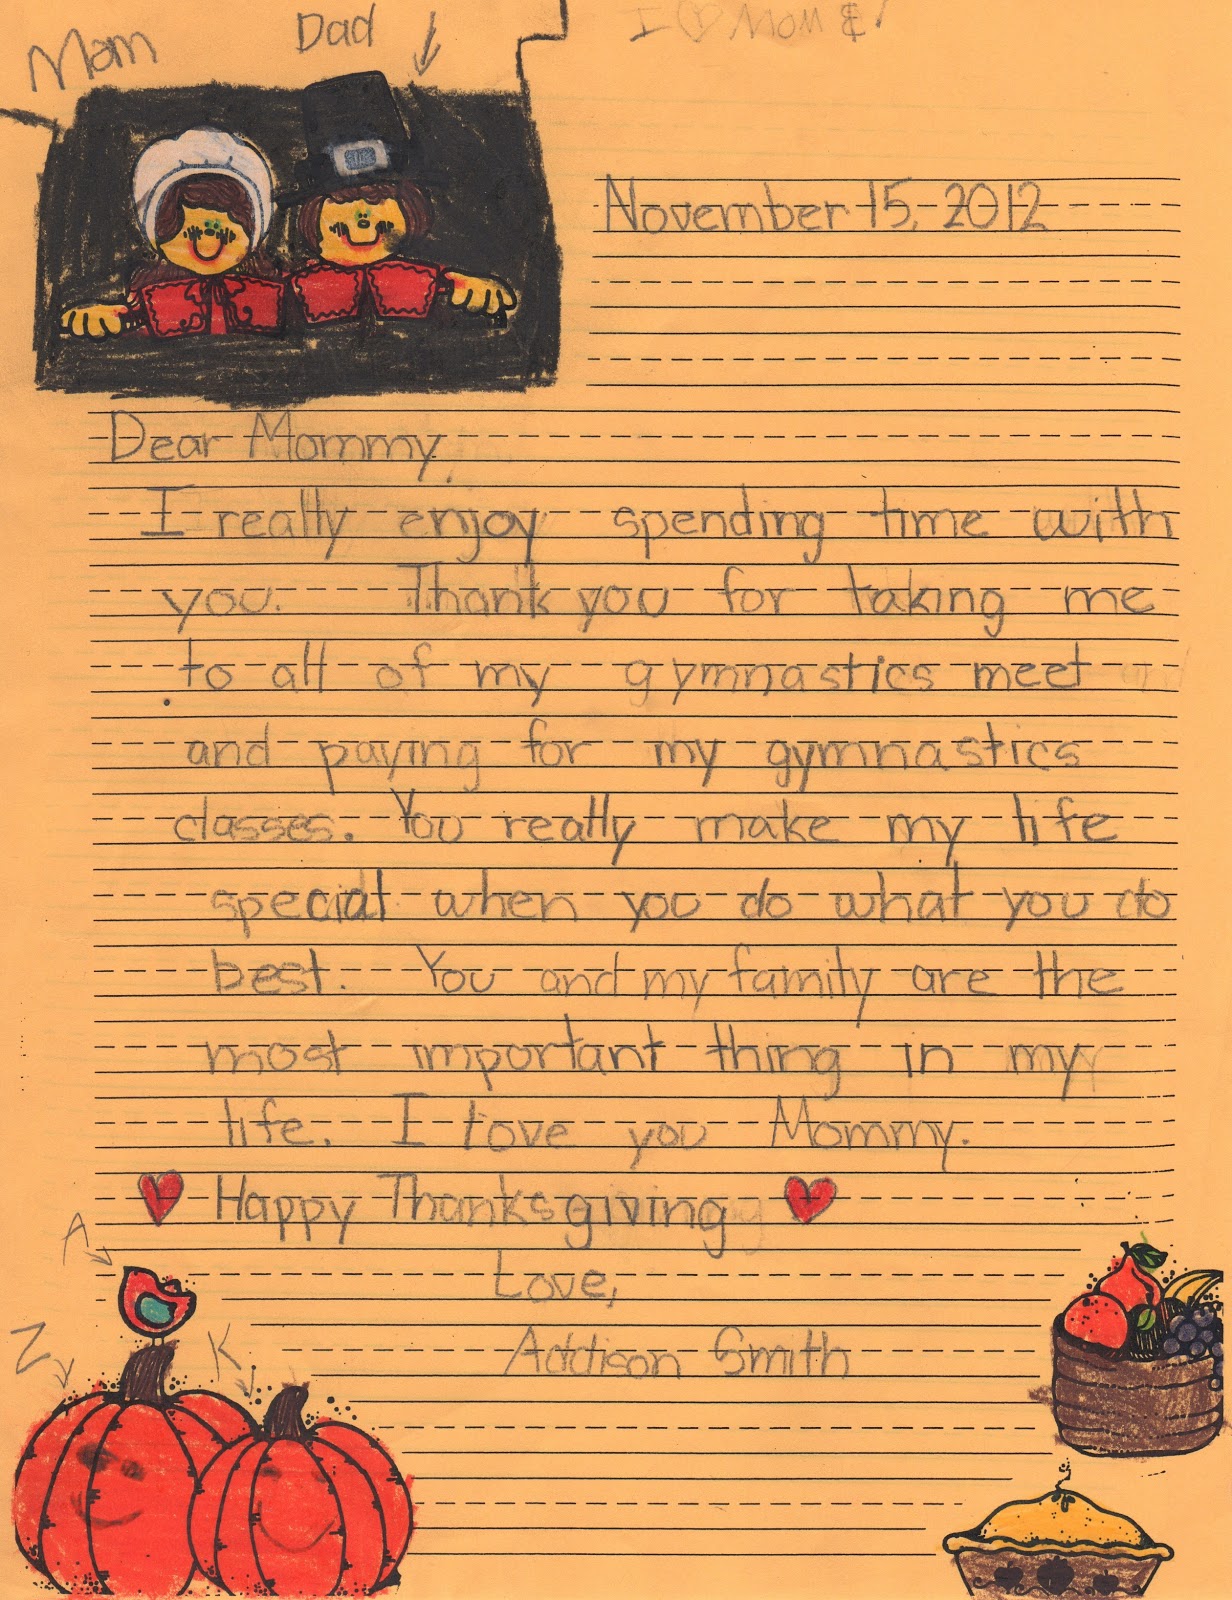 Mom
Dad
I ♡ Mom &
November 15, 2012
Dear Mommy,
I really enjoy spending time with
you. Thank you for taking me
to all of my gymnastics meet
and paying for my gymnastics
classes. You really make my life
special when you do what you do
best. You and my family are the
most important thing in my
life. I love you Mommy.
Happy Thanksgiving
Love,
Addison Smith
A
Z
K